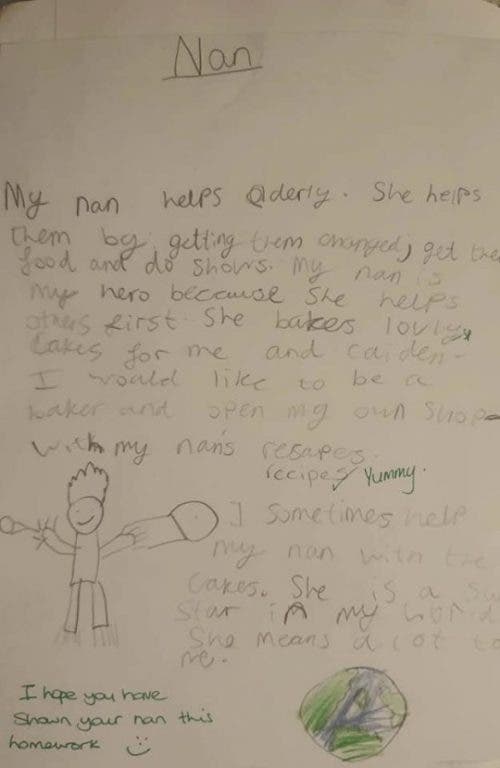 Nan
My nan helps elderly. She helps
them by getting them changed, get the
food and do shows. My nan is
my hero because she helps
others first. She bakes lovly
cakes for me and caiden.
I would like to be a
baker and open my own shop
with my nan's resapes.
recipes Yummy.
I sometimes help
my nan with the
cakes. She is a su
star in my world
She means a lot to
me.
I hope you have
shown your nan this
homework